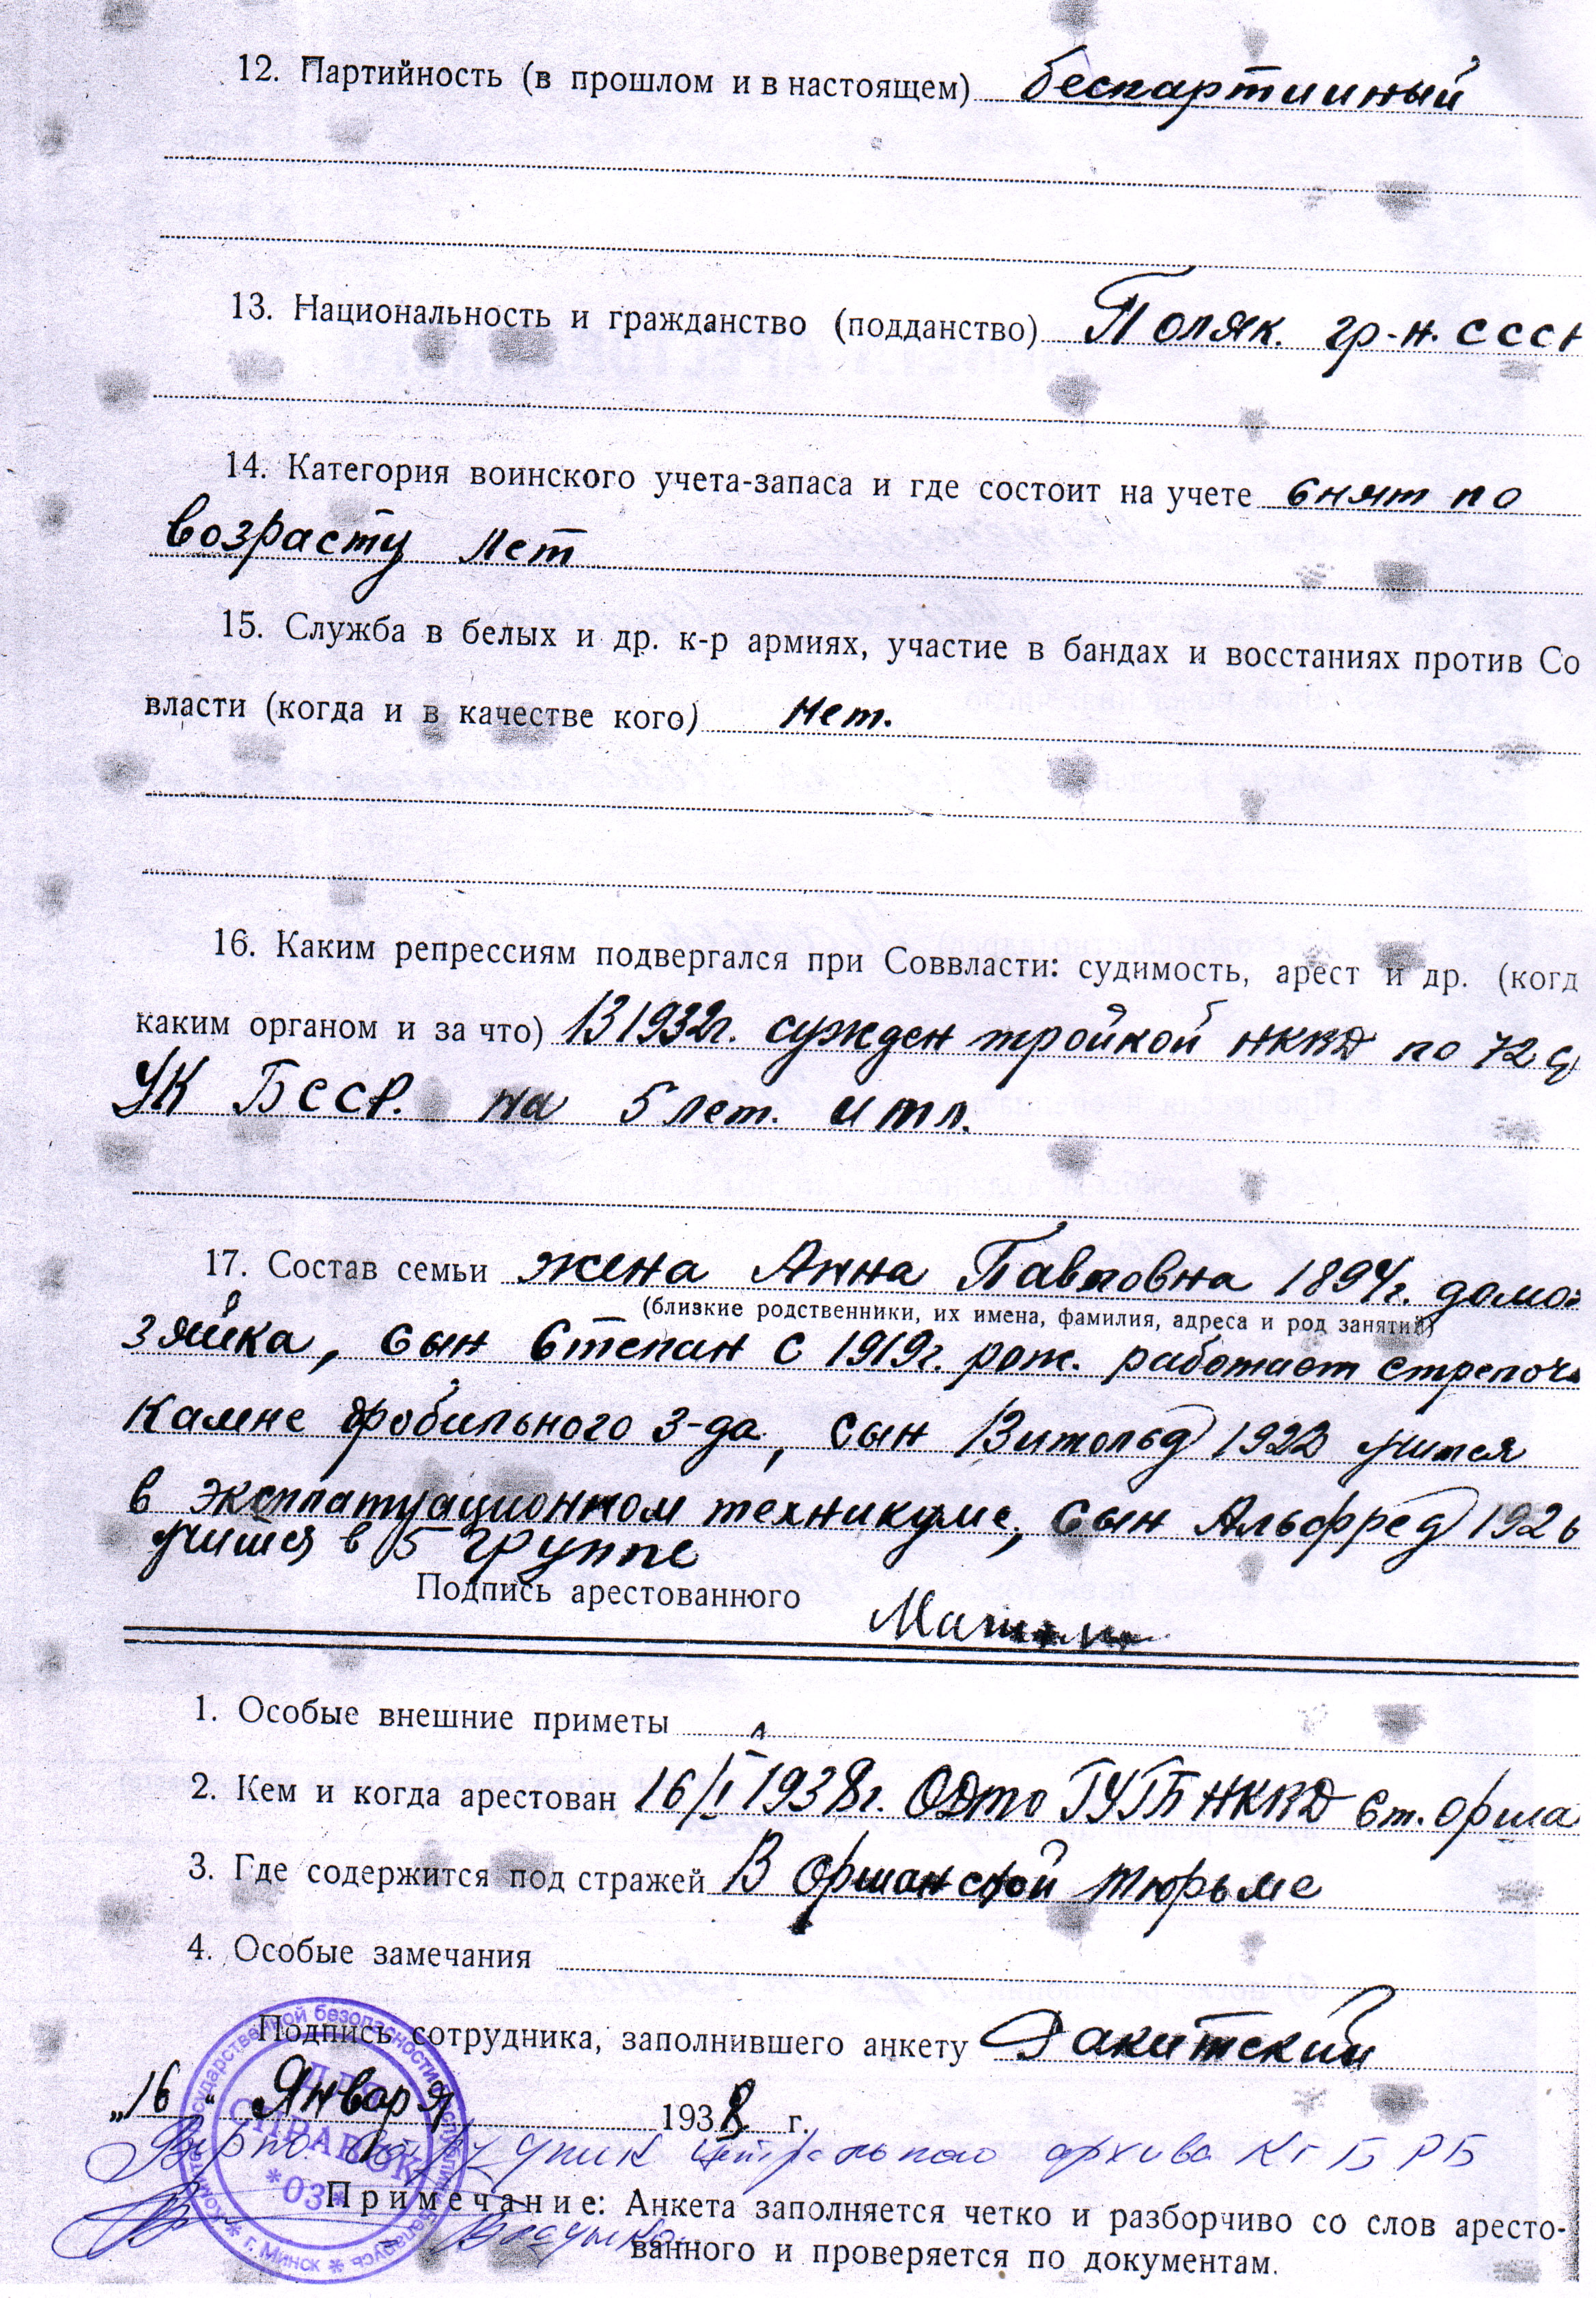 12. Партийность (в прошлом и в настоящем) беспартииный
13. Национальность и гражданство (подданство) Поляк. гр-н. СССР
14. Категория воинского учета-запаса и где состоит на учете снят по
возрасту лет
15. Служба в белых и др. к-р армиях, участие в бандах и восстаниях против Со
власти (когда и в качестве кого) Нет.
16. Каким репрессиям подвергался при Соввласти: судимость, арест и др. (когд
каким органом и за что) В 1932г. сужден тройкой НКВД по 72
УК БССР. на 5 лет. итл.
17. Состав семьи жена Анна Павловна 1894г. домо
(близкие родственники, их имена, фамилия, адреса и род занятий)
зяйка, сын Степан с 1919г. рож. работает стрелоч
камне дробильного з-да, сын Витольд 1922 учится
в эксплатуационном техникуме, сын Альфред 1926
учится в 5 группе
Подпись арестованного
1. Особые внешние приметы
2. Кем и когда арестован 16/I 1938г. ОДТО ГУГБ НКВД ст. Орша
3. Где содержится под стражей В Оршанской тюрьме
4. Особые замечания
Подпись сотрудника, заполнившего анкету Ракитский
„16" Января 1938 г.
Верно: сотрудник Центрального архива КГБ РБ
Примечание: Анкета заполняется четко и разборчиво со слов аресто-
ванного и проверяется по документам.
ДЛЯ
СПРАВОК
*03*
г. Минск